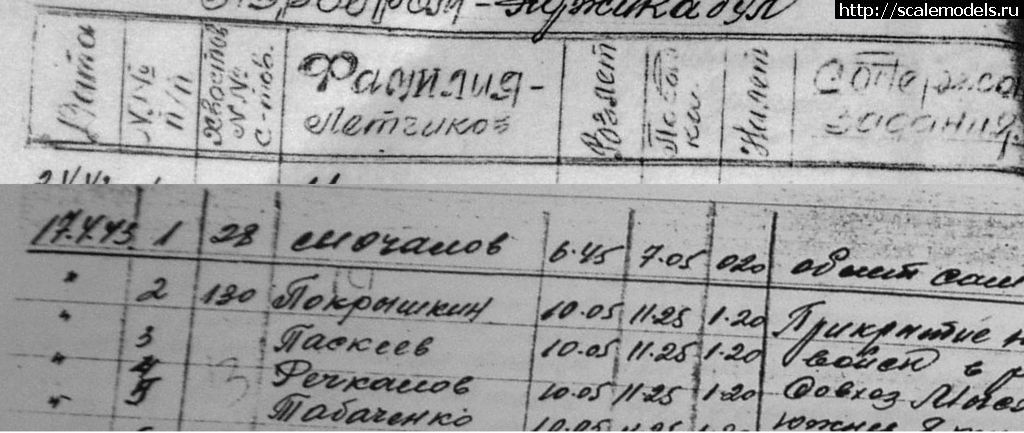 http://scalemodels.ru
Дата № № п/п хвостов № № с-тов. Фамилия - Летчиков Взлет Посад ки. Налет задания
17.4.43. 1 28 Мочалов 6.45 7.05 020 облет сам
" 2 130 Покрышкин 10.05 11.25 1.20 Прикрытие н
" 3 Паскеев 10.05 11.25 1.20 войск в р
" 4 Речкалов 10.05 11.25 1.20 Совхоз
" 5 Табаченко 10.05 11.25 южнее